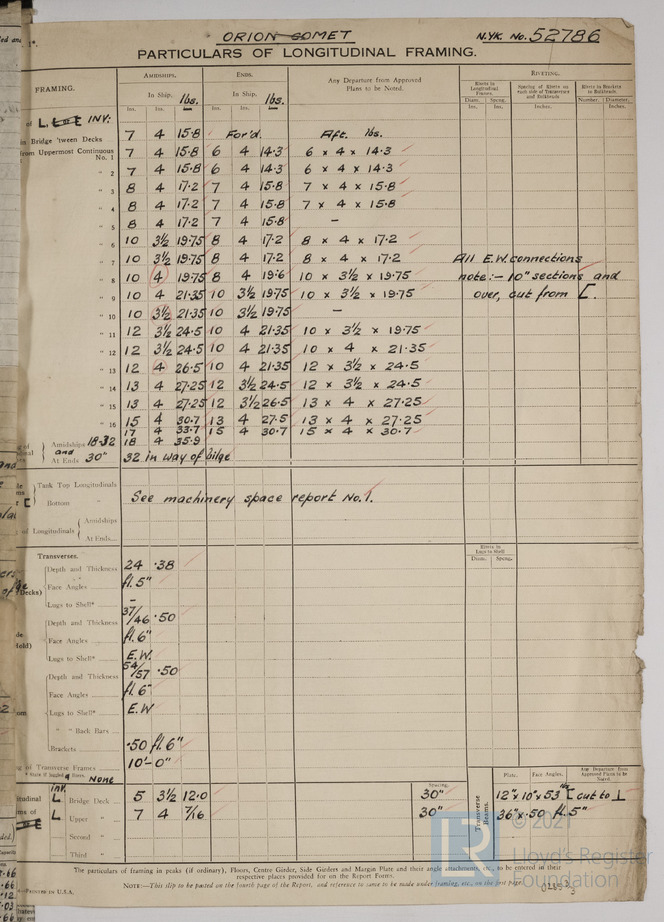 ORION COMET N.YK. No. 52786
PARTICULARS OF LONGITUDINAL FRAMING.
FRAMING. AMIDSHIPS. ENDS. Any Departure from Approved Plans to be Noted. RIVETING.
In Ship. lbs. In Ship. lbs. Rivets in Longitudinal Frames. Spacing of Rivets on each side of Transverses and Bulkheads. Rivets in Brackets to Bulkheads.
Ins. Ins. Ins. Ins. Diam. Spcng. Inches. Number. Diameter.
Ins. Ins. Inches.
of L. INV:
in Bridge 'tween Decks 7 4 15.8 For'd. Aft. lbs.
from Uppermost Continuous No. 1 7 4 15.8 6 4 14.3 6 x 4 x 14.3
" 2 7 4 15.8 6 4 14.3 6 x 4 x 14.3
" 3 8 4 17.2 7 4 15.8 7 x 4 x 15.8
" 4 8 4 17.2 7 4 15.8 7 x 4 x 15.8
" 5 8 4 17.2 7 4 15.8 –
" 6 10 3½ 19.75 8 4 17.2 8 x 4 x 17.2
" 7 10 3½ 19.75 8 4 17.2 8 x 4 x 17.2 All E.W. connections
" 8 10 4 19.75 8 4 19.6 10 x 3½ x 19.75 note:- 10" sections and
" 9 10 4 21.35 10 3½ 19.75 10 x 3½ x 19.75 over, cut from [.
" 10 10 3½ 21.35 10 3½ 19.75 –
" 11 12 3½ 24.5 10 4 21.35 10 x 3½ x 19.75
" 12 12 3½ 24.5 10 4 21.35 10 x 4 x 21.35
" 13 12 4 26.5 10 4 21.35 12 x 3½ x 24.5
" 14 13 4 27.25 12 3½ 24.5 12 x 3½ x 24.5
" 15 13 4 27.25 12 3½ 26.5 13 x 4 x 27.25
" 16 15 4 30.7 13 4 27.5 13 x 4 x 27.25
17 4 33.7 15 4 30.7 15 x 4 x 30.7
Amidships 18-32 18 4 35.9
and
At Ends 30" 32 in way of bilge
Tank Top Longitudinals
Bottom " See machinery space report No. 1.
of Longitudinals Amidships
At Ends
Transverses. Rivets in Lugs to Shell
Diam. Spcng.
Depth and Thickness 24 .38
Face Angles fl. 5"
Decks)
Lugs to Shell* –
Depth and Thickness 37/46 .50
Face Angles fl. 6"
Hold)
Lugs to Shell* E.W.
Depth and Thickness 54/57 .50
Face Angles fl. 6"
Lugs to Shell* E.W
" " Back Bars
Brackets .50 fl. 6"
of Transverse Frames 10'-0"
* State if joggled or liners. NONE
Spacing. Plate. Face Angles. Any Departure from Approved Plans to be Noted.
inv. L Bridge Deck 5 3½ 12.0 30" Transverse Beams. 12" x 10" x 53 lbs [ cut to ⊥
L Upper " 7 4 7/16 30" 36" x .50 fl. 5"
Second "
Third "
The particulars of framing in peaks (if ordinary), Floors, Centre Girder, Side Girders and Margin Plate and their angle attachments, etc., to be entered in their
respective places provided for on the Report Forms.
NOTE:—This slip to be pasted on the fourth page of the Report, and reference to same to be made under framing, etc., on the first page.
PRINTED IN U.S.A.
LR
© 2021
Lloyd's Register
Foundation